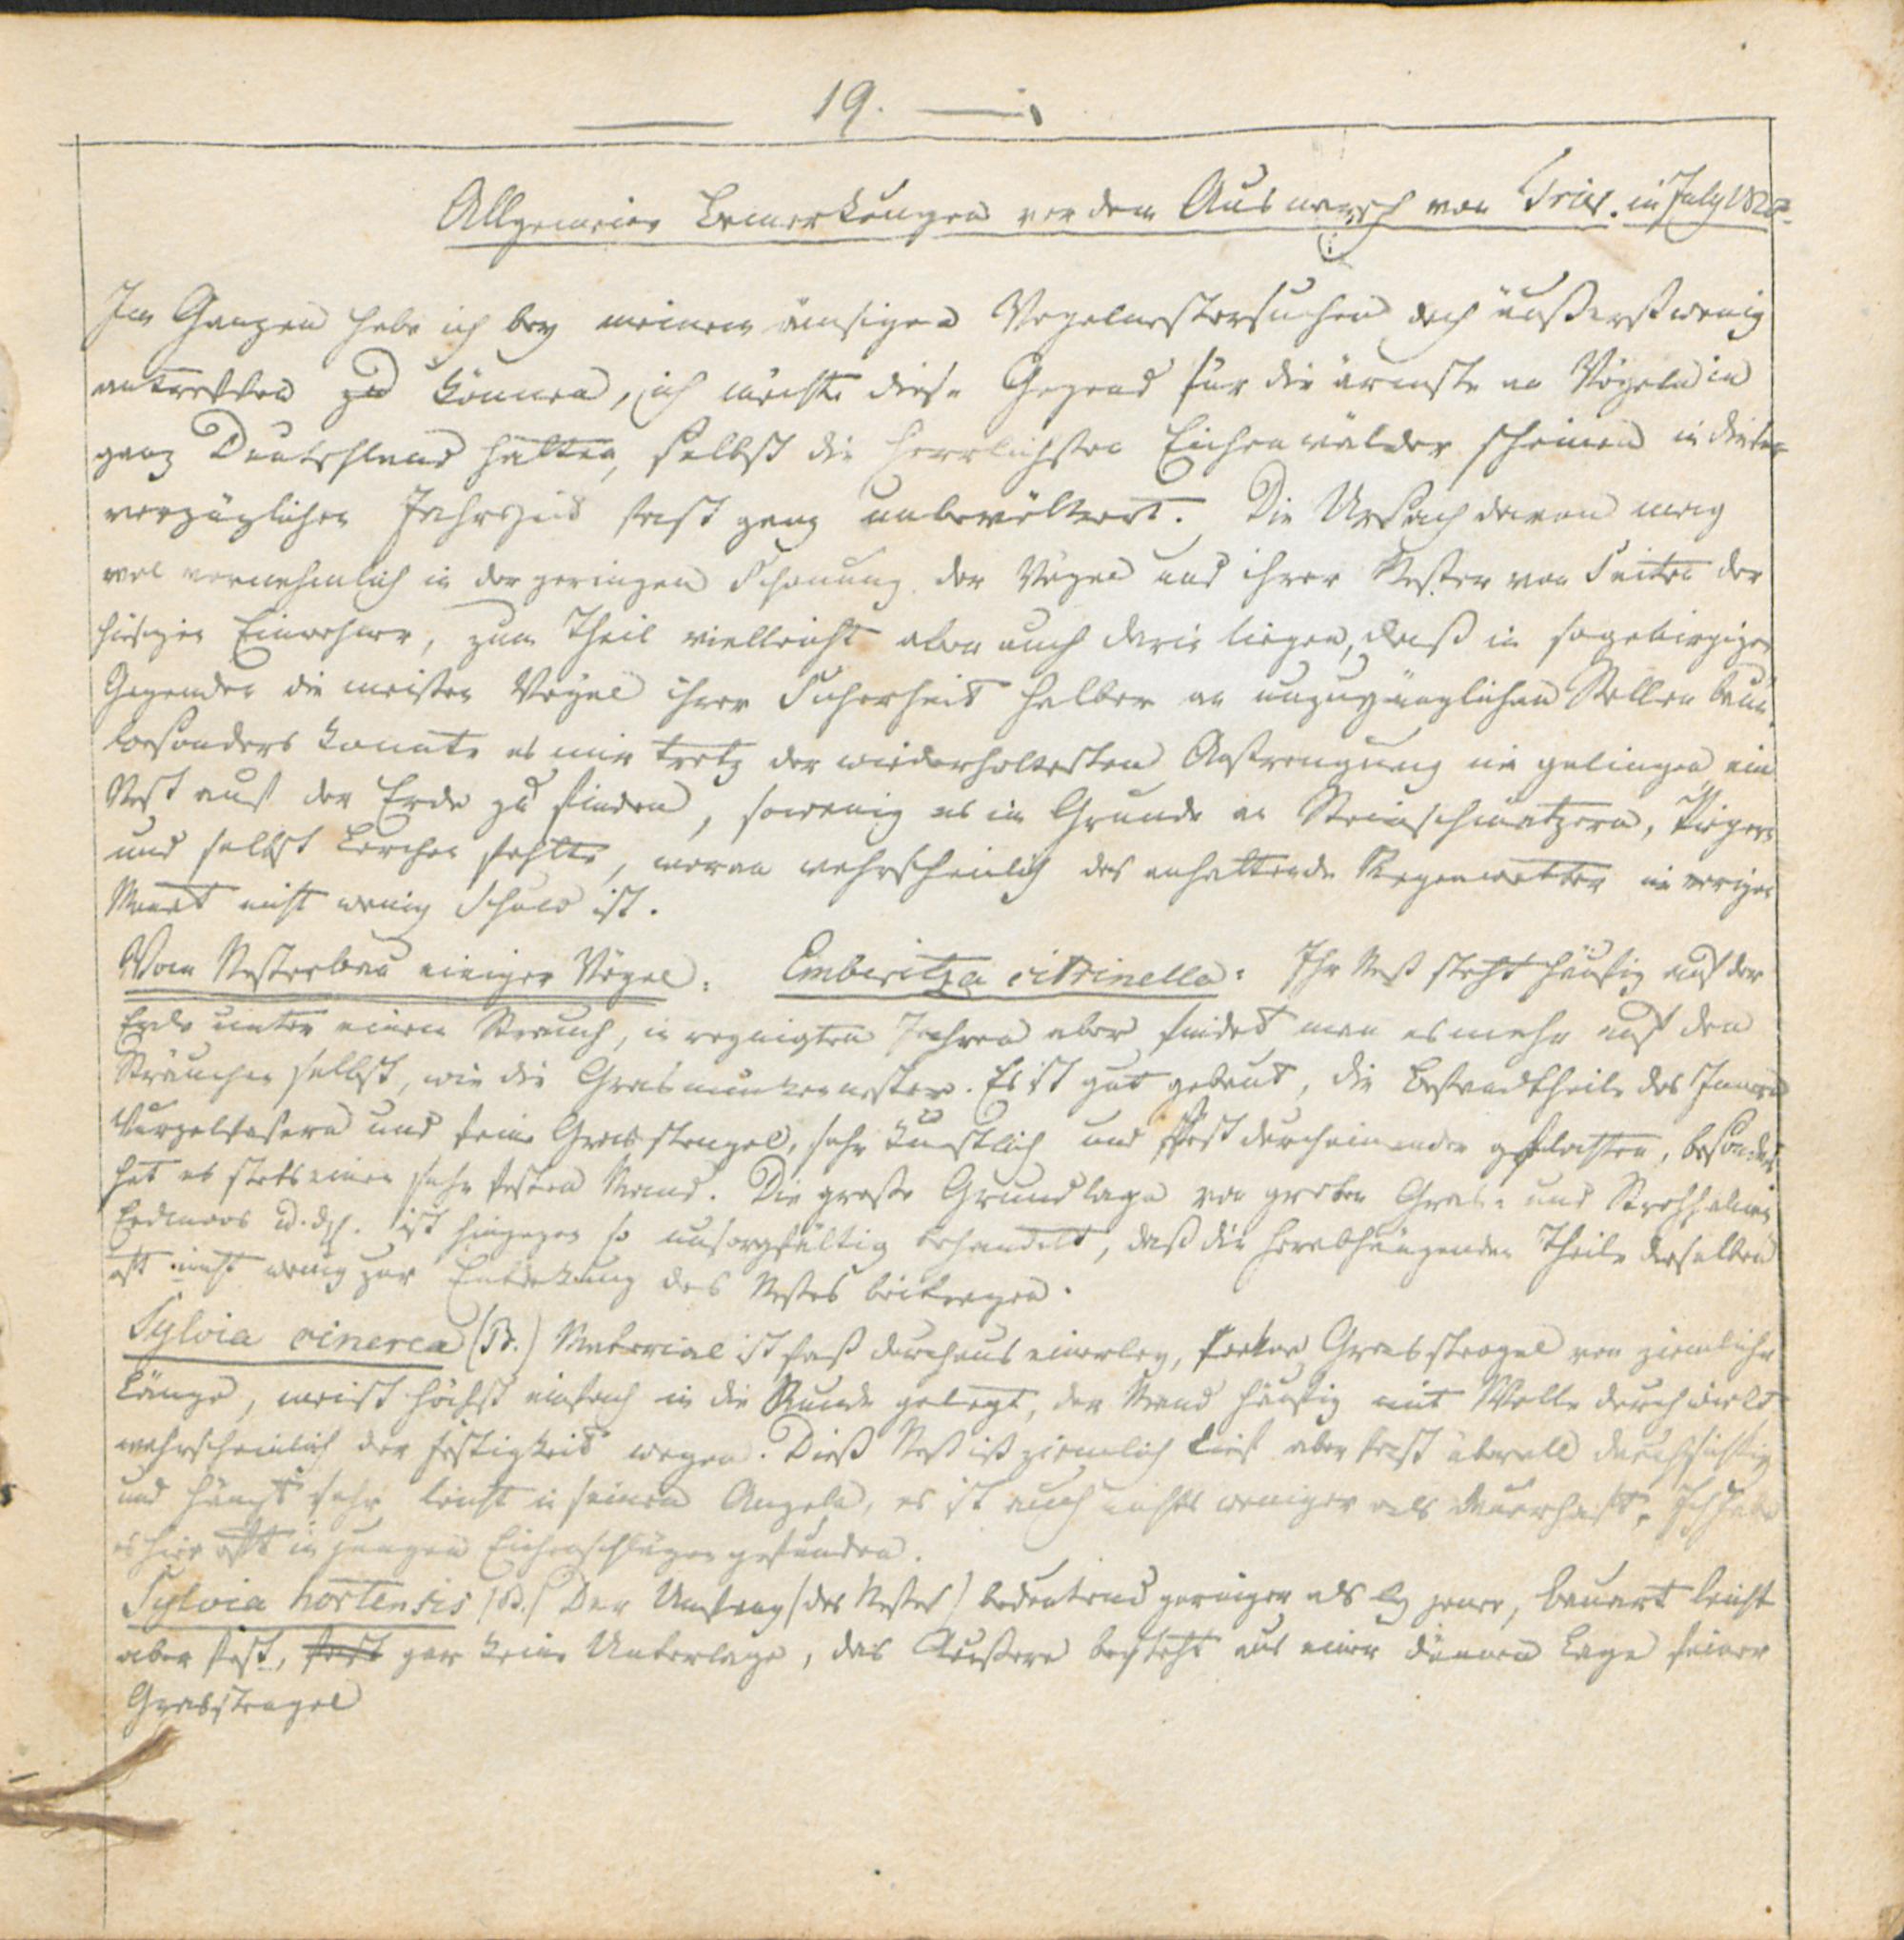 19.
Allgemeine Bemerkungen vor dem Ausmarsch von Trier. in July 182
Im Ganzen habe ich bey meinem ämsigen Vogelnestersuchen doch äußerst wenig
antreffen zu können, ich möchte diese Gegend für die ärmste an Vögeln in
ganz Deutschland halten, selbst die herrlichsten Eichenwälder scheinen in dieser
vorzüglichen Jahrszeit fast ganz unbevölkert. Die Ursach davon mag
wol vornehmlich in der geringen Schonung der Vögel und ihrer Nester von Seiten der
hiesigen Einwohner, zum Theil vielleicht aber auch darin liegen, daß in so gebirgigen
Gegenden die meisten Vögel ihrer Sicherheit halber an unzugänglichen Stellen baun,
besonders konnte es mir trotz der wiederholtesten Anstrengung nie gelingen ein
Nest auf der Erde zu finden, sowenig es im Grunde an Steinschmätzern, Piepern
und selbst Lerchen fehlte, woran wahrscheinlich das anhaltende Regenwetter im vorigen
Monat nicht wenig Schuld ist.
Vom Nesterbau einiger Vögel: Emberitza citrinella: Ihr Nest steht häufig auf der
Erde unter einem Strauch, in regnigten Jahren aber findet man es mehr auf den
Sträuchen selbst, wie die Grasmückennester. Es ist gut gebaut, die Bestandtheile des Innern
Wurzelfasern und feine Grasstengel, sehr künstlich und fest durcheinander geflochten, besonders
hat es stets einen sehr festen Rand. Die große Grundlage von groben Gras- und Strohhalmen
Erdmoos u. dgl. ist hingegen so unsorgfältig behandelt, daß die herabhängenden Theile derselben
oft nicht wenig zur Entdekung des Nestes beitragen.
Sylvia cinerea (B.) Material ist fast durchaus einerley, Grasstengel von ziemlicher
Länge, meist höchst einfach in die Runde gelegt, der Rand häufig mit Wolle durchwirkt
wahrscheinlich der Festigkeit wegen. Dieß Nest ist ziemlich tief aber fast überall durchsichtig
und hängt sehr leicht in seinen Angeln, es ist auch nichts weniger als dauerhaft. Ich habe
es hier oft in jungen Eichenschlägen gefunden.
Sylvia hortensis (B.) Der Umfang (des Nestes) bedeutend geringer als bey jener, Bauart leicht
aber fest, fast gar keine Unterlage, das Äußere besteht aus einer dünnen Lage feiner
Grasstengel